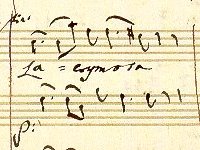 La = crymosa
p: